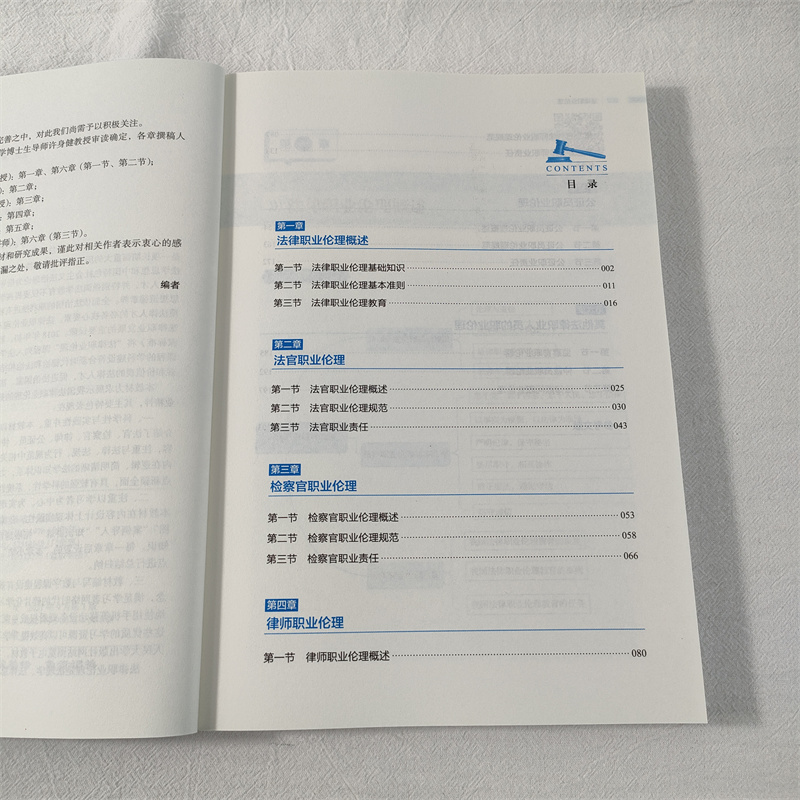 完善之中，对此我们尚需予以积极关注。
学博士生导师许身健教授审读确定，各章撰稿人
授）：第一章、第六章（第一节、第二节）；
）：第二章；
授）：第三章；
：第四章；
第五章；
师）：第六章（第三节）。
材和研究成果，谨此对相关作者表示衷心的感
漏之处，敬请批评指正。
编者
CONTENTS
目 录
第一章
法律职业伦理概述
第一节 法律职业伦理基础知识 002
第二节 法律职业伦理基本准则 011
第三节 法律职业伦理教育 016
第二章
法官职业伦理
第一节 法官职业伦理概述 025
第二节 法官职业伦理规范 030
第三节 法官职业责任 043
第三章
检察官职业伦理
第一节 检察官职业伦理概述 053
第二节 检察官职业伦理规范 058
第三节 检察官职业责任 066
第四章
律师职业伦理
第一节 律师职业伦理概述 080